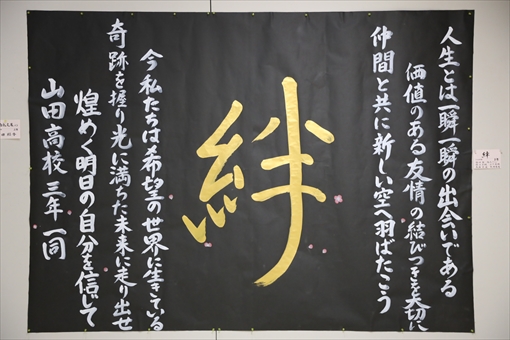 人生とは一瞬一瞬の出会いである
価値のある友情の結びつきを大切に
仲間と共に新しい空へ羽ばたこう
絆
今私たちは希望の世界に生きている
奇跡を握り光に満ちた未来に走り出せ
煌めく明日の自分を信じて
山田高校三年一同
絆